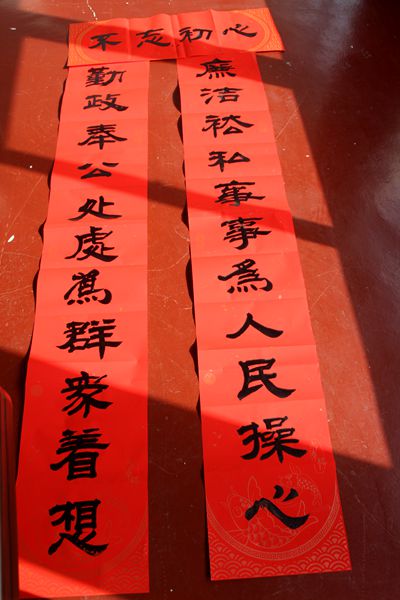 不忘初心
廉洁祛私事事為人民操心
勤政奉公处處為群眾着想